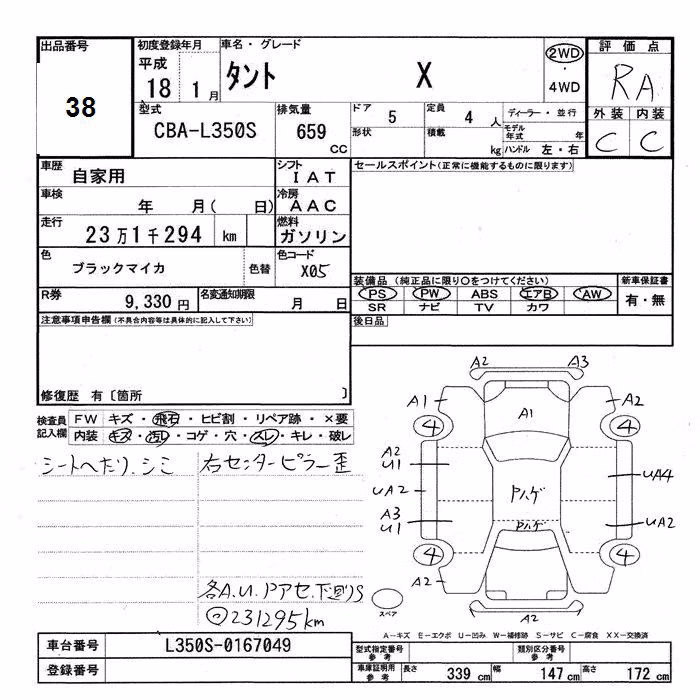 出品番号
38
初度登録年月
平成
18 1月
車名・グレード
タント X
2WD
・
4WD
評価点
RA
外装 内装
C C
型式
CBA-L350S
排気量
659 CC
ドア 5
定員 4 人
ディーラー・並行
形状
積載 kg
モデル年式 年
ハンドル 左・右
車歴 自家用
シフト IAT
車検 年 月( 日)
冷房 AAC
走行 23万1千294 km
燃料 ガソリン
色 ブラックマイカ 色替
色コード X05
R券 9,330 円
名変通知期限 月 日
セールスポイント(正常に機能するものに限ります)
装備品 (純正品に限り○をつけてください)
新車保証書
PS PW ABS エアB AW
SR ナビ TV カワ
有・無
後日品
注意事項申告欄(不具合内容等は具体的に記入して下さい)
修復歴 有〔箇所 〕
検査員記入欄
FW キズ・飛石・ヒビ割・リペア跡・×要
内装 キズ・汚レ・コゲ・穴・スレ・キレ・破レ
シートへたり.シミ
右センターピラー歪
各A.U.Pアセ.下廻りS
◎231295km
A2 A3
A1 A1 A2
4 4
A2
U1
UA2
A3
U1
Pハゲ
Pハゲ
UA4
UA2
4 4
A2
A2
スペア
A-キズ E-エクボ U-凹み W-補修跡 S-サビ C-腐食 XX-交換済
車台番号 L350S-0167049
登録番号
型式指定番号 参考
類別区分番号 参考
車庫証明用 参考
長さ 339 cm 幅 147 cm 高さ 172 cm